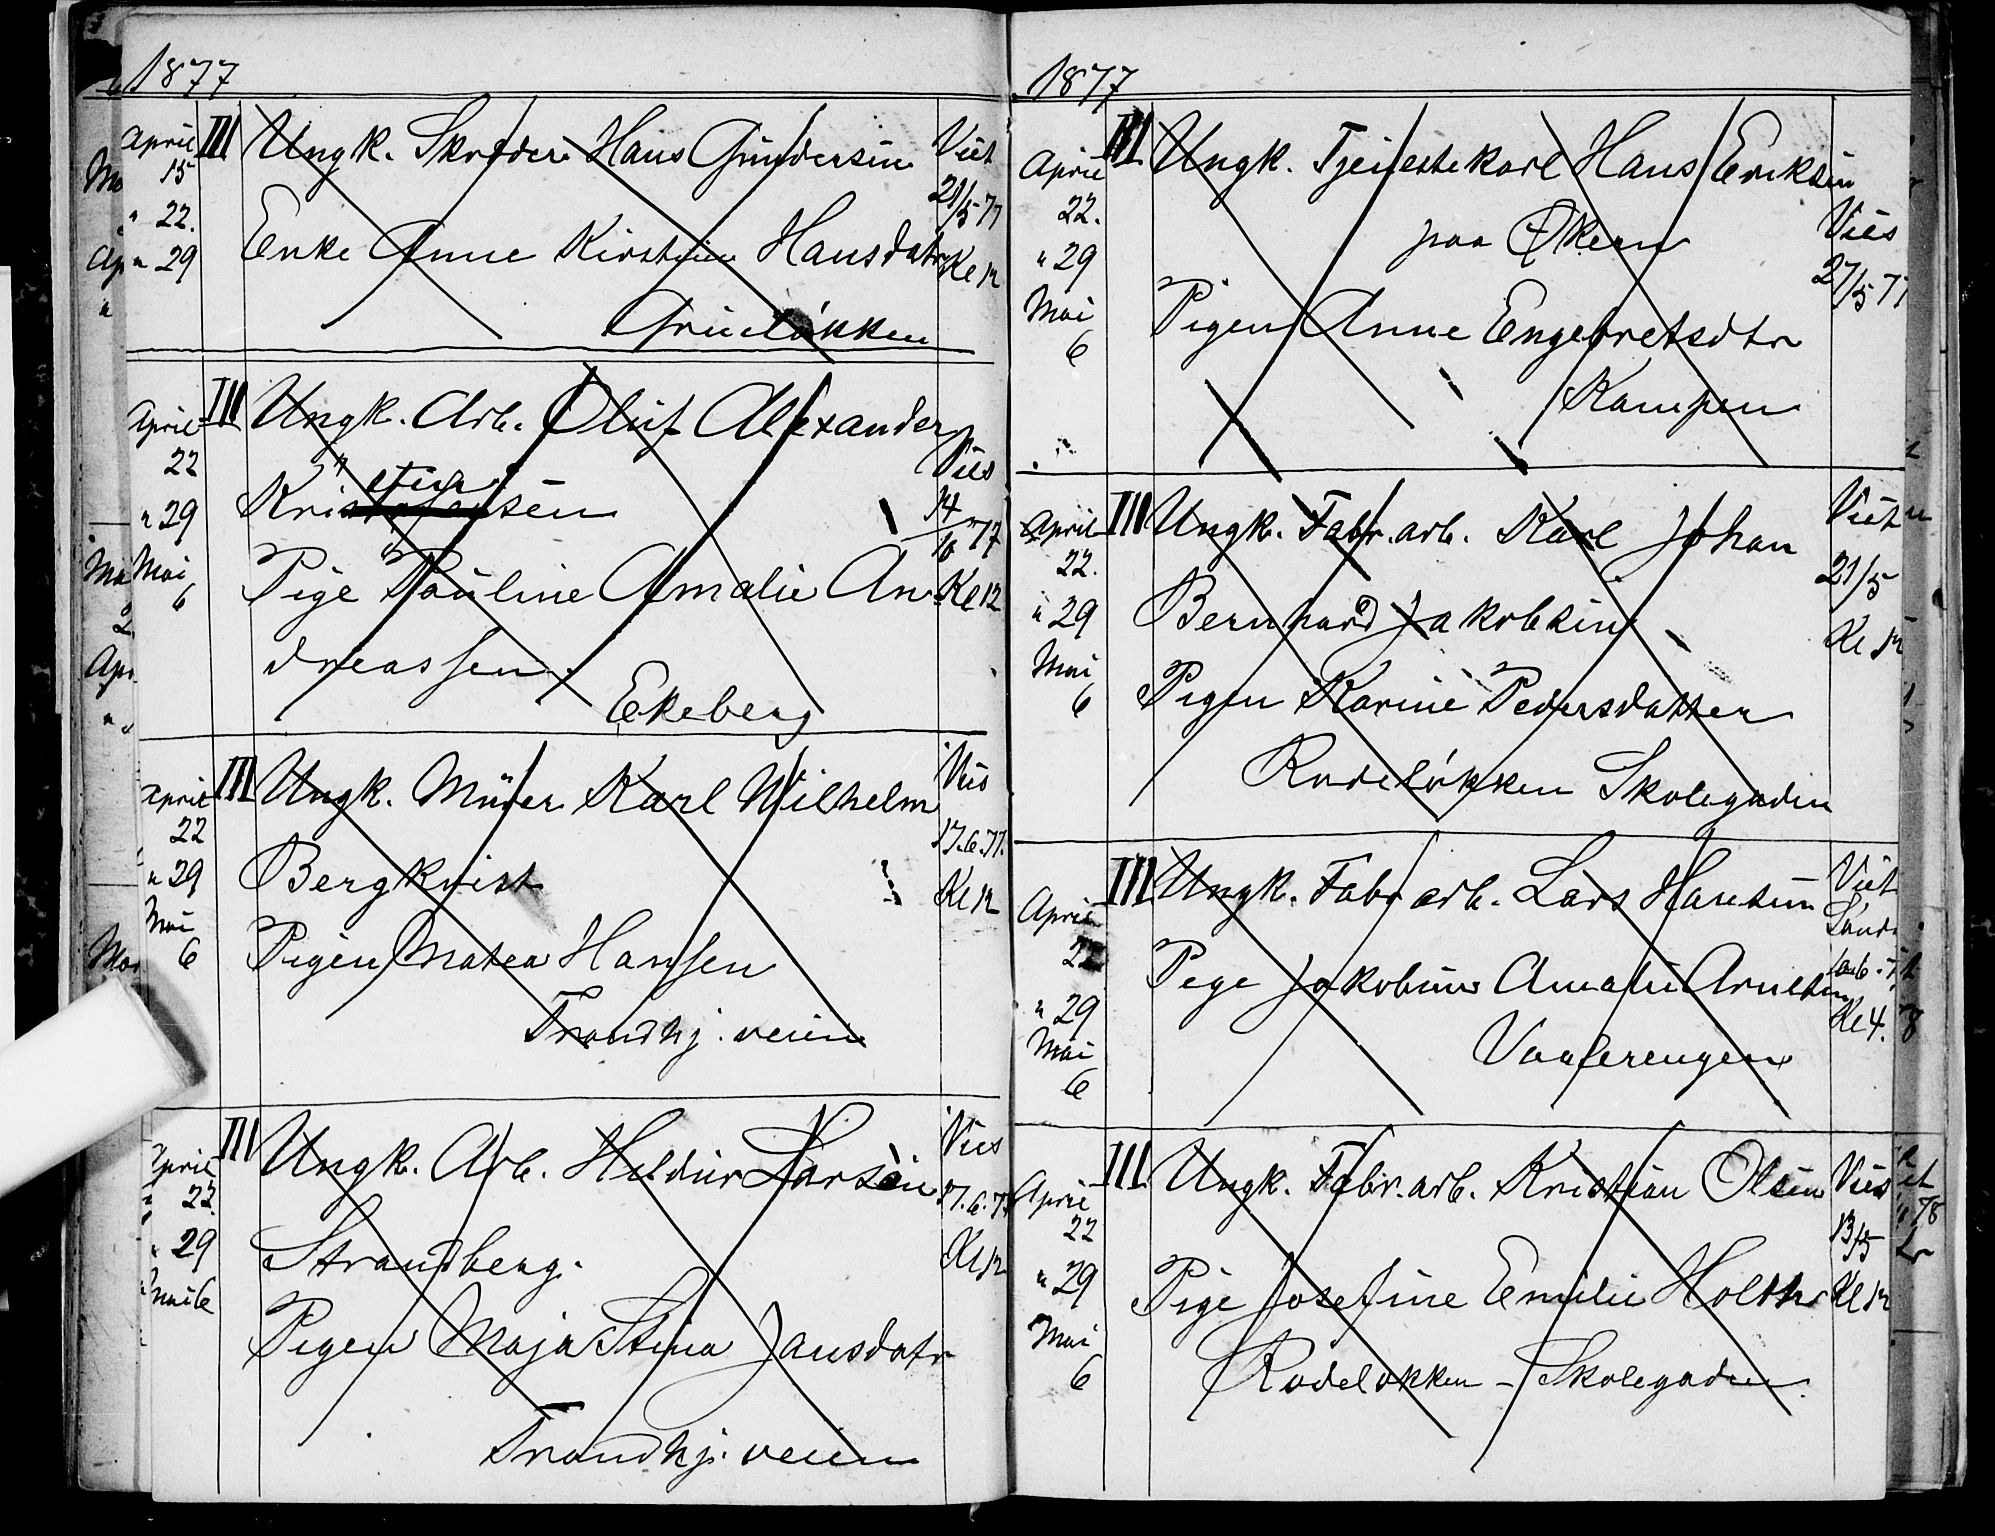 1877
April III Ungk. Skræder Hans Gundersen Viet
15
21/5 77
" 22.
" 29 Enke Anne Kirstine Hansdatr Kl 12
Grünerløkken
April III Ungk. Arb. Oluf Alexander Vies
22
" 29 Kristiansen 14/10 77
Mai
6 Pige Pauline Amalie An- Kl 12
dreassen.
Ekeberg
April III Ungk. Murer Karl Wilhelm Vies
22 17.6.77.
" 29 Bergkvist Kl 12
Mai
6 Pigen Matea Hansen
Trondhj. veien
April III Ungk. Arb. Larsen Vies
22. 17.6.77
" 29 Strandberg. Kl 12
Mai 6
Pigen Maja Stina Jansdatr
Trondhj. veien
1877
April III Ungk. Tjenestekarl Hans Eriksen
22. paa Økern Vies
" 29 27/5 77
Mai Pigen Anne Engebretsdtr
6
Kampen
April III Ungk. Fabr. arb. Karl Johan Viet
22. 21/5
" 29 Bernhard Jakobsen Kl 12
Mai
6 Pigen Karine Pedersdatter
Rodeløkken Skolegaden
April III Ungk. Fabr arb. Lars Hansen Viet
22 Pige Jakobine Amalie Arnesen
" 29 Kl 4.
Mai Vaalerengen
6
April III Ungk. Fabr. arb. Kristian Olsen Vies
22 13/5
" 29 Pige Josefine Emilie Holthe Kl 12
Mai
6 Rodeløkken - Skolegaden.